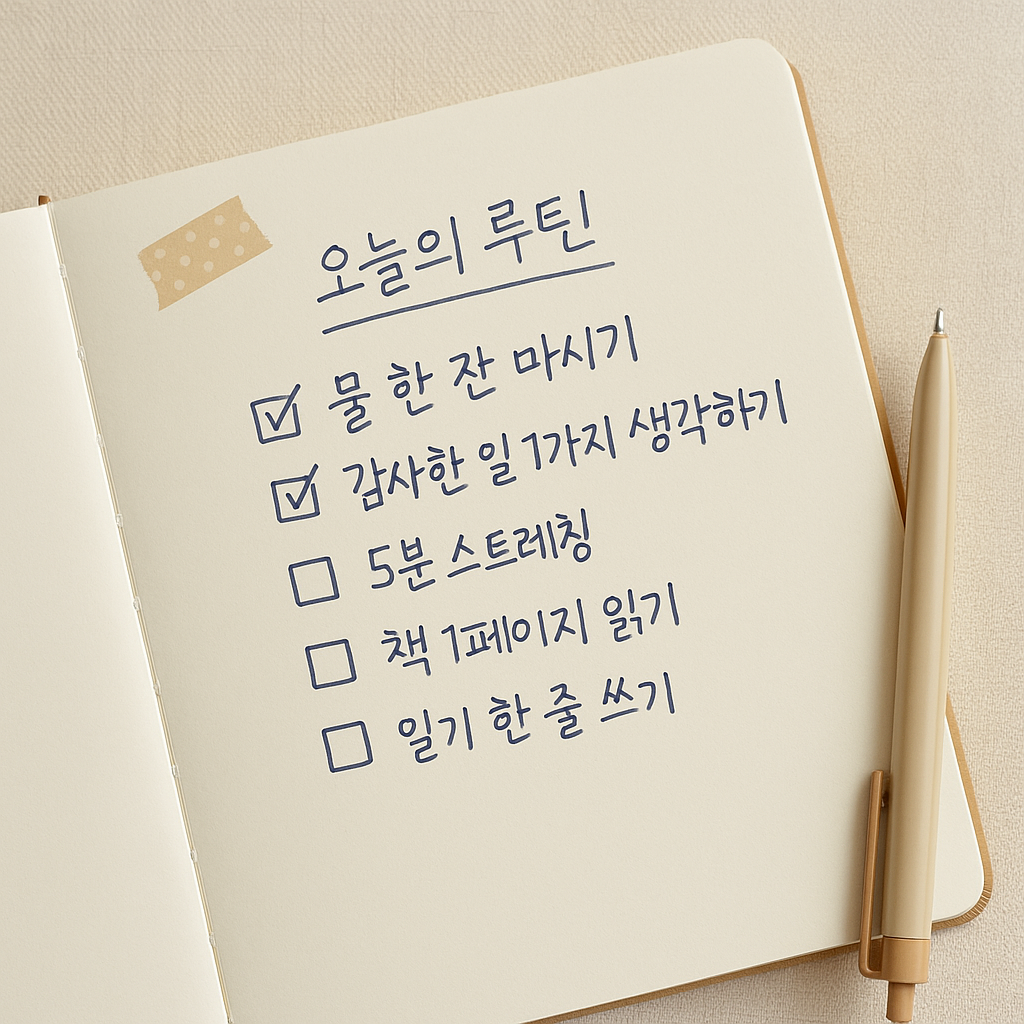 오늘의 루틴
물 한 잔 마시기
감사한 일 1가지 생각하기
5분 스트레칭
책 1페이지 읽기
일기 한 줄 쓰기